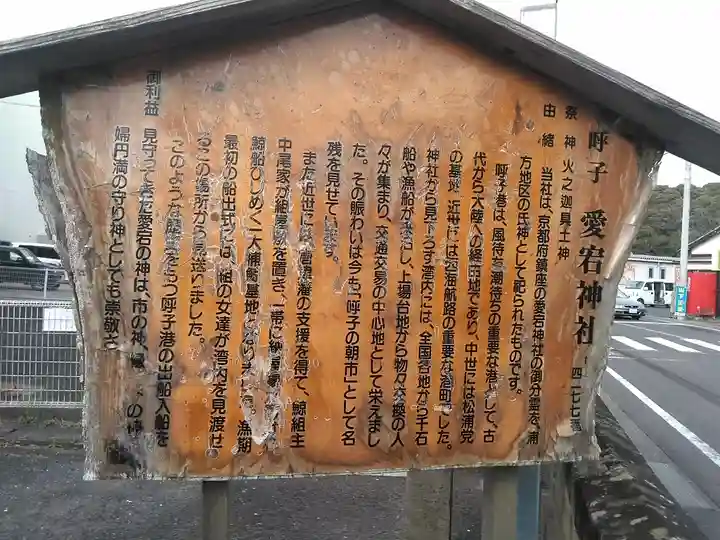 呼子 愛宕神社
祭神 火之迦具土神
由緒 当社は、京都府鎮座の愛宕神社の御分霊を、浦
方地区の氏神として祀られたものです。
呼子港は、風待ち潮待ちの重要な港として、古
代から大陸への経由地であり、中世には松浦党
の基地、近世には内海航路の重要な港町でした。
神社から見下ろす湾内には、全国各地から千石
船や漁船が し、上場台地から物々交換の人
々が集まり、交通交易の中心地として栄えまし
た。その賑わいは今も「呼子の朝市」として名
残を見せています。
また近世には、唐津藩の支援を得て、鯨組主
中尾家が組屋敷を置き、一帯は
鯨船ひしめく一大捕鯨基地となりました。漁期
最初の船出式には、組の女達が湾内を見渡せ
るこの場所から見送りました。
このような歴史をもつ呼子港の出船入船を
御利益 見守ってきた愛宕の神は、市の神、 の神
婦円満の守り神としても崇敬